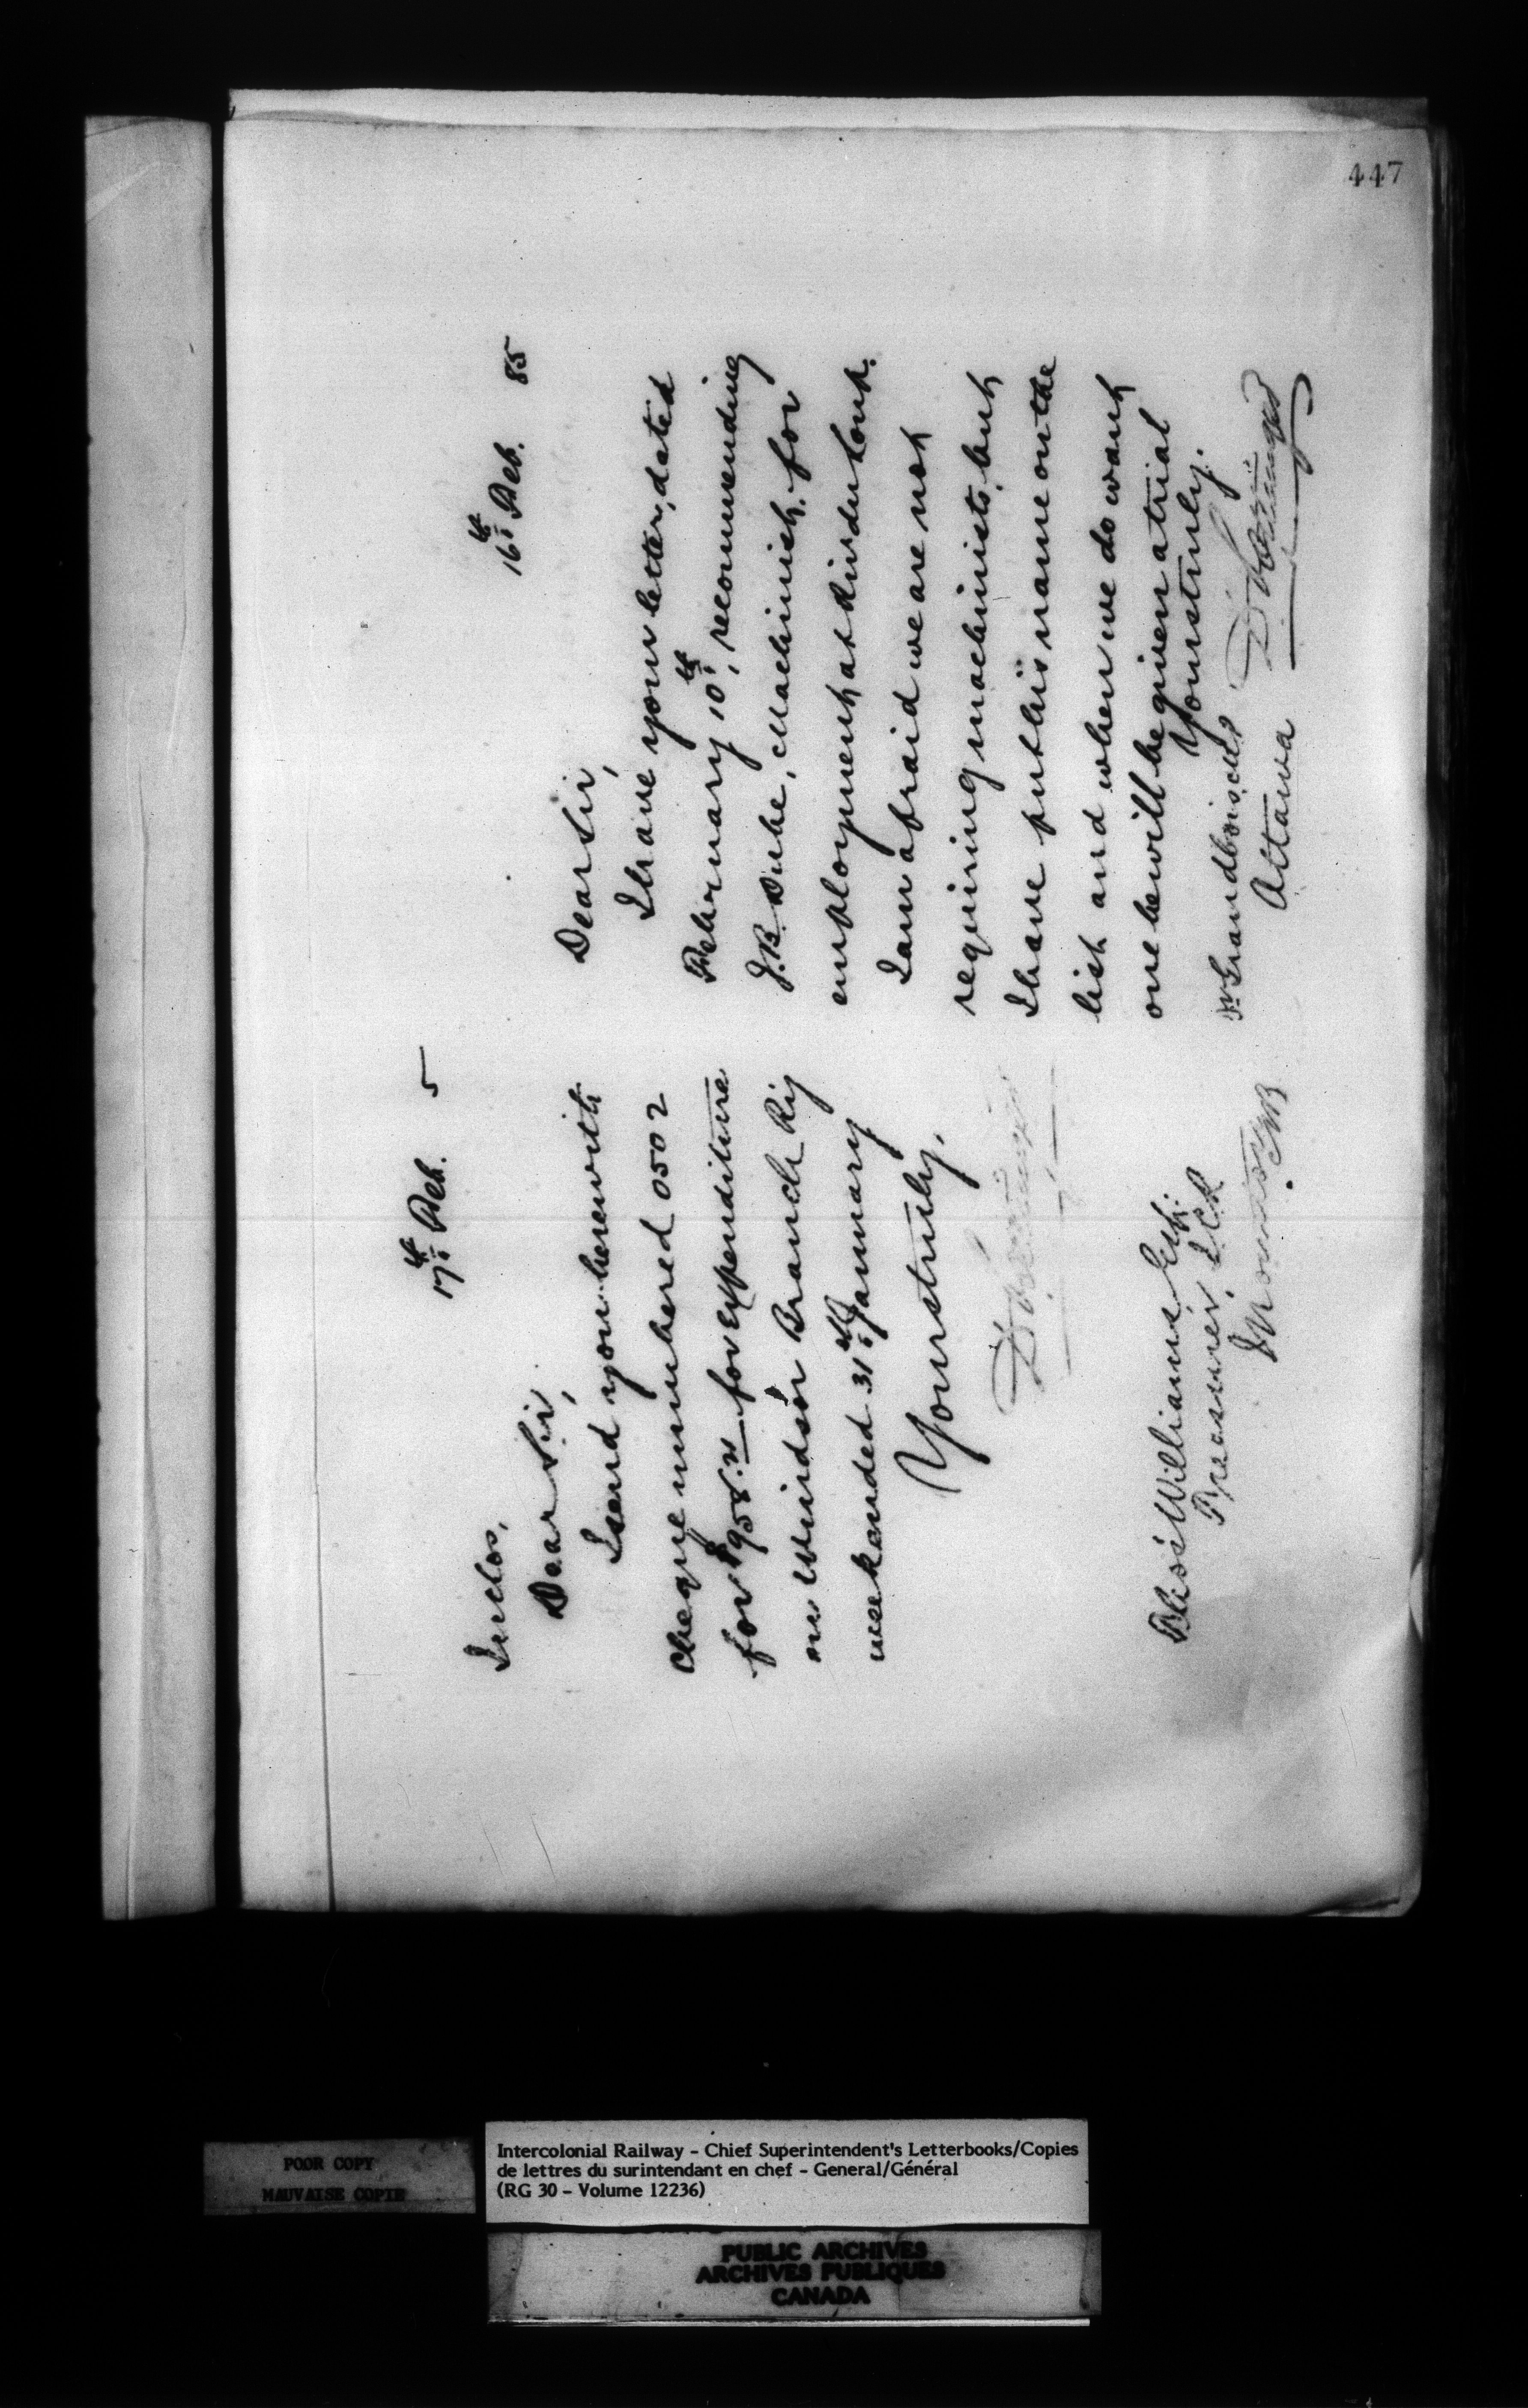 447
17th Feb. 5
Inclos.
Dear Sir,
I send you herewith
cheque numbered 0502
for $958.21 for expenditure
on Windsor Branch Ry
week ended 31st January
Yours truly,
Bliss Williams Esq.
Treasurer, I.C.R
Moncton N.B
16th Feb. 85
Dear Sir,
I have your letter, dated
February 10th, recommending
J.B. Dube, Machinist. for
employment at Riv du Loup.
I am afraid we are not
requiring machinists, but
I have put his name on the
list and when we do want
one he will be given a trial
Yours truly.
Mr Grandbois, M.P.
Ottawa
POOR COPY
MAUVAISE COPIE
Intercolonial Railway - Chief Superintendent's Letterbooks/Copies
de lettres du surintendant en chef - General/Général
(RG 30 - Volume 12236)
PUBLIC ARCHIVES
ARCHIVES PUBLIQUES
CANADA